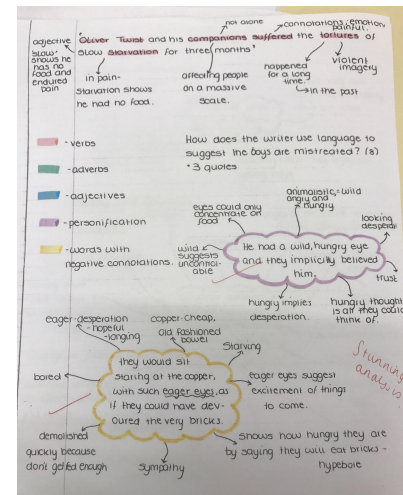 not alone
connotations, emotion
painful.
adjective
'Oliver Twist and his companions suffered the tortures of
slow starvation for three months'
slow-
shows he
has no
food and
endured
pain
in pain-
starvation shows
he had no food.
affecting people
on a massive
scale.
happened
for a long
time.
in the past
violent
imagery
- verbs
- adverbs
- adjectives
- personification
- words with
negative connotations.
How does the writer use language to
suggest the boys are mistreated? (8)
• 3 quotes
eyes could only
concentrate on
food
animalistic = wild
angry and
hungry
looking
wild
suggests
He had a wild, hungry eye
and they implicitly believed
him.
trust
hungry implies
desperation.
hungry thought
is all they could
think of.
eager-desperation
- hopeful
- longing
copper-cheap,
old fashioned
starving
bored
they would sit
staring at the copper,
with such eager eyes, as
if they could have dev-
oured the very bricks.
eager eyes suggest
excitement of things
to come.
Stunning
analysis
demolished
quickly because
don't get fed enough
sympathy
shows how hungry they are
by saying they will eat bricks -
hypebole